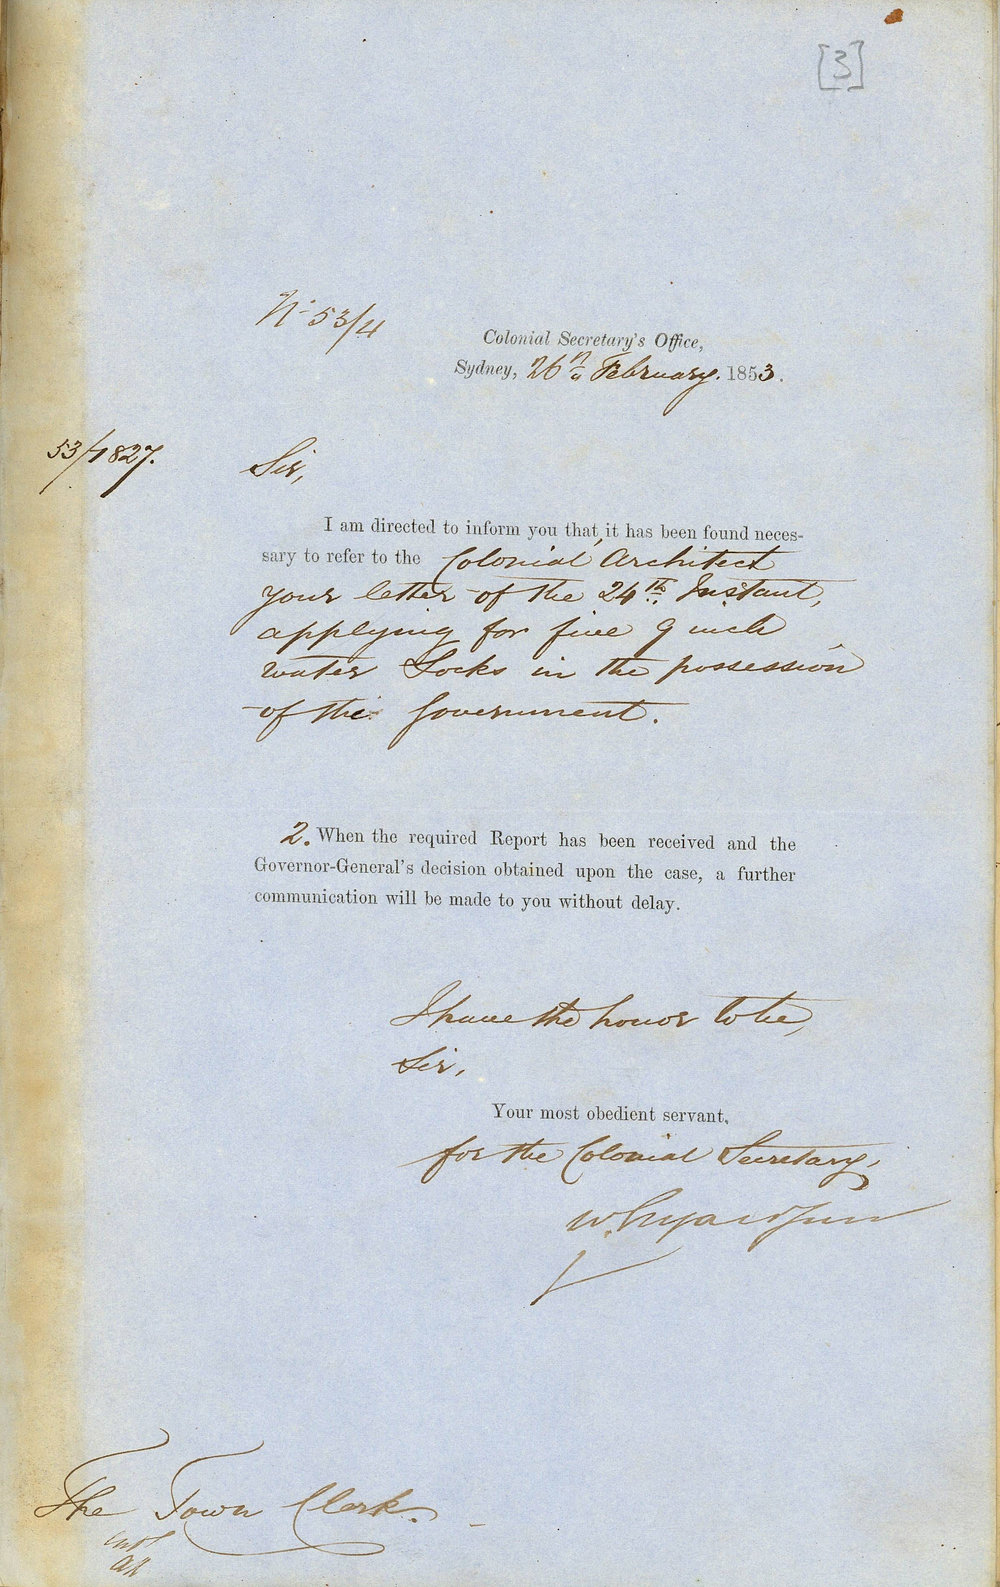 [3]
No 53/4
Colonial Secretary's Office,
Sydney, 26th February. 1853.
53/1827.
Sir,
I am directed to inform you that, it has been found neces-
sary to refer to the Colonial Architect
your letter of the 24th Instant,
applying for five 9 inch
water Locks in the possession
of the Government.
2. When the required Report has been received and the
Governor-General's decision obtained upon the case, a further
communication will be made to you without delay.
I have the honor to be,
Sir,
Your most obedient servant,
for the Colonial Secretary,
W.
The Town Clerk.